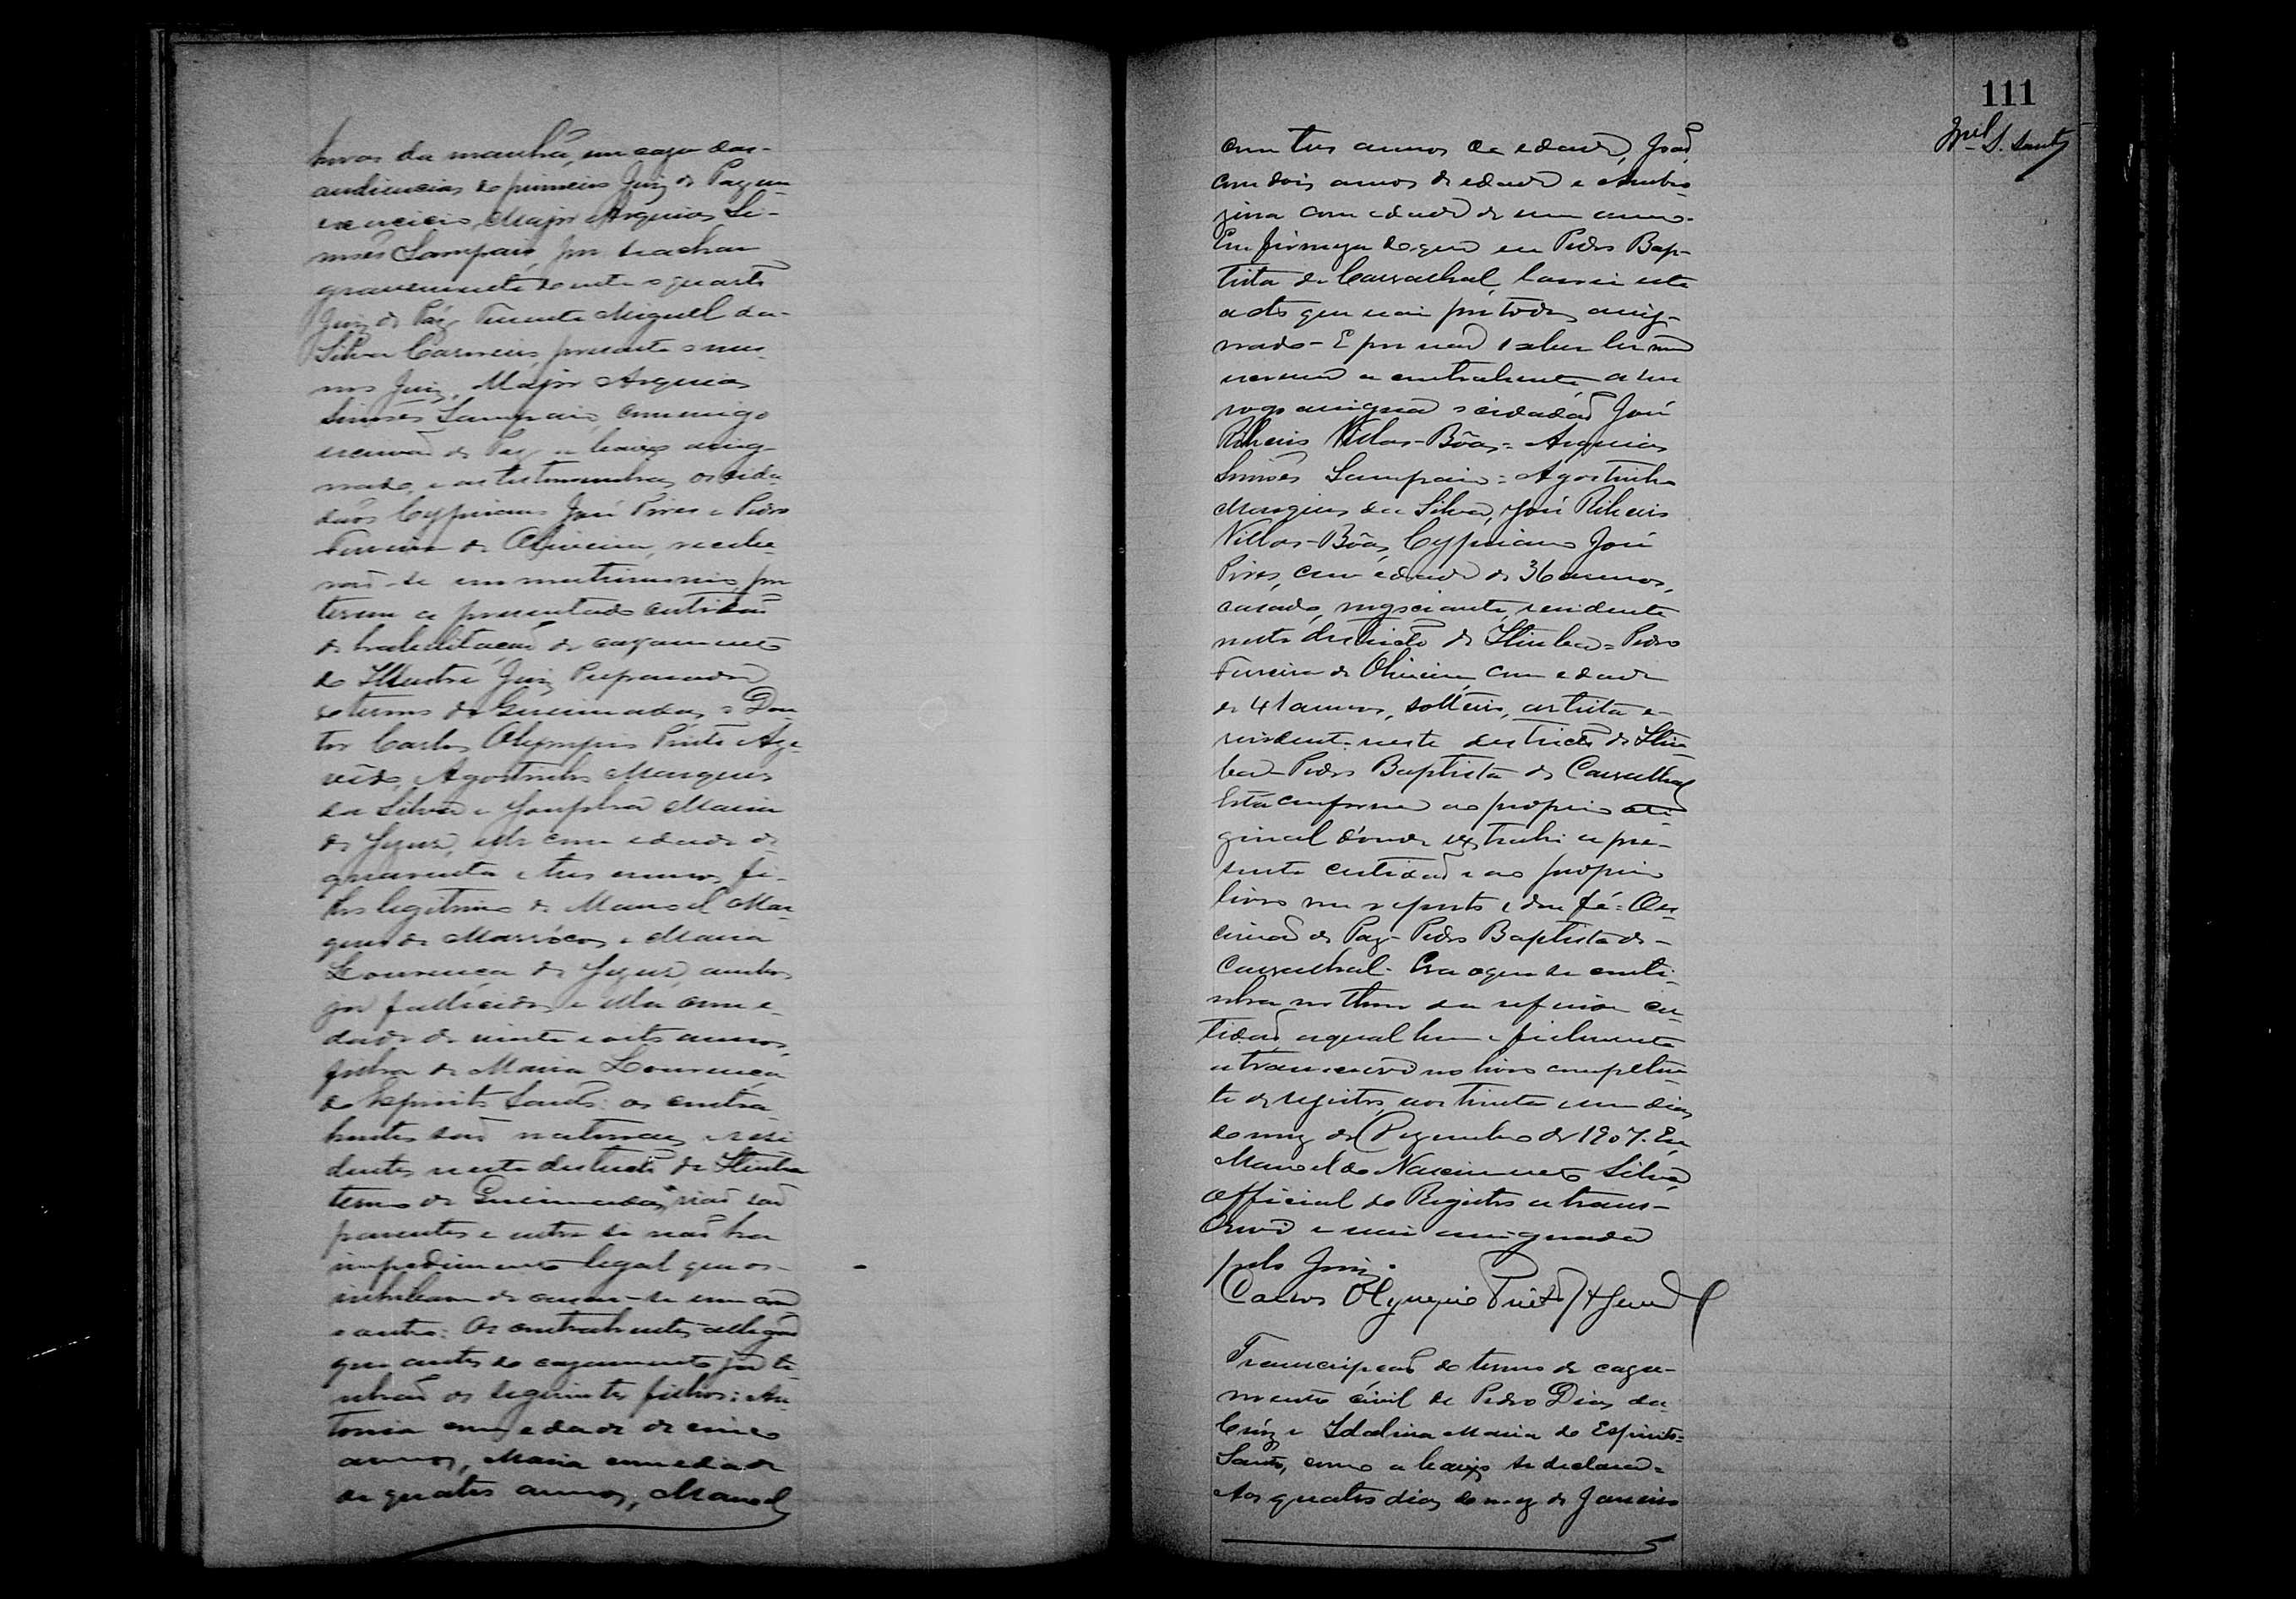 horas da manhã, em caza das-
audiencias do primeiro Juiz de Paz em
exercicio, Major Arquias Si-
mões Sampaio, por se achar
gravemente doente o quarto
Juiz de Paz Tenente Miguel da-
Silva Carneiro, presente o mes-
mo Juiz, Major Arquias
Simões Sampaio, commigo
escrivaõ de Paz a baixo assig-
nado, e as testemunhas os cida-
dãos Cypriano José Pires e Pedro
Ferreira de Oliveira, recebe-
raõ-se em matrimonio, por
terem a presentado certidaõ
de habelitaçaõ de cazamento
do Illustre Juiz Preparador
do termo de Queimadas, o Dou-
tor Carlos Olympio Pinto Aze-
vêdo, Agostinho Marques
da Silva e Josepha Maria
de Jezus, elle com edade de
quarenta e tres annos, fi-
lho legitimo de Manoel Mar-
ques de Marrócos e Maria
Lourença de Jezus, ambos
já fallicidos e ella com e-
dade de vinte e oito annos,
filha de Maria Lourença
do Espirito Santo: os contra-
hentes saõ naturaes e resi-
dentes neste destricto de Itiuba
termo de Queimadas, naõ saõ
parentes e entre si naõ ha
impedimento legal que os-
inhibam de cazar-se um com
o outro. Os contrahentes allegaõ
que antes do cazamento já ti-
nhaõ os seguintes filhos: An-
tonia com edade de cinco
annos, Maria com edade
de quatro annos, Manoel
111
com tres annos de edade, Joaõ,
com dois annos de edade e Ambro-
zina com edade de um anno.
Em firmeza do que eu Pedro Bap-
tista de Carvalhal, lavrei este
acto que vai por todos assig-
nado - E por naõ saber ler nem
escrever a contrahente a seu
rogo assigna o cidadaõ José
Ribeiro Villas-Bôas = Arquias
Simões Sampaio = Agostinho
Marques da Silva, José Ribeiro
Villas-Bôas, Cypriano José
Pires, com edade de 36 annos,
casado, negociante, residente
neste destricto de Itiuba = Pedro
Ferreira de Oliveira, com edade
de 41 annos, solteiro, artista e
residente neste destricto de Itiu-
ba - Pedro Baptista de Carvalhal
Está conforme ao proprio ori-
ginal d'onde extrahi a pre-
sente certidaõ e ao proprio
livro me reporto e dou fé. O Es-
crivaõ de Paz - Pedro Baptista de-
Carvalhal. Era o que se conti-
nha no theor da referida cer-
tidaõ, a qual bem e fielmente
a transcrevo no livro competen-
te de registro, aos trinta e um dias
do mez de Dezembro de 1907. Eu
Manoel do Nascimento Silva,
Official do Registro a trans-
crevi e vai assignada
pelo Juiz.
Carlos Olympio Pinto Azevedo
Transcripçaõ do termo de caza-
mento civil de Pedro Dias da
Cruz e Idalina Maria do Espirito-
Santo, como a baixo se declara =
Aos quatro dias do mez de Janeiro